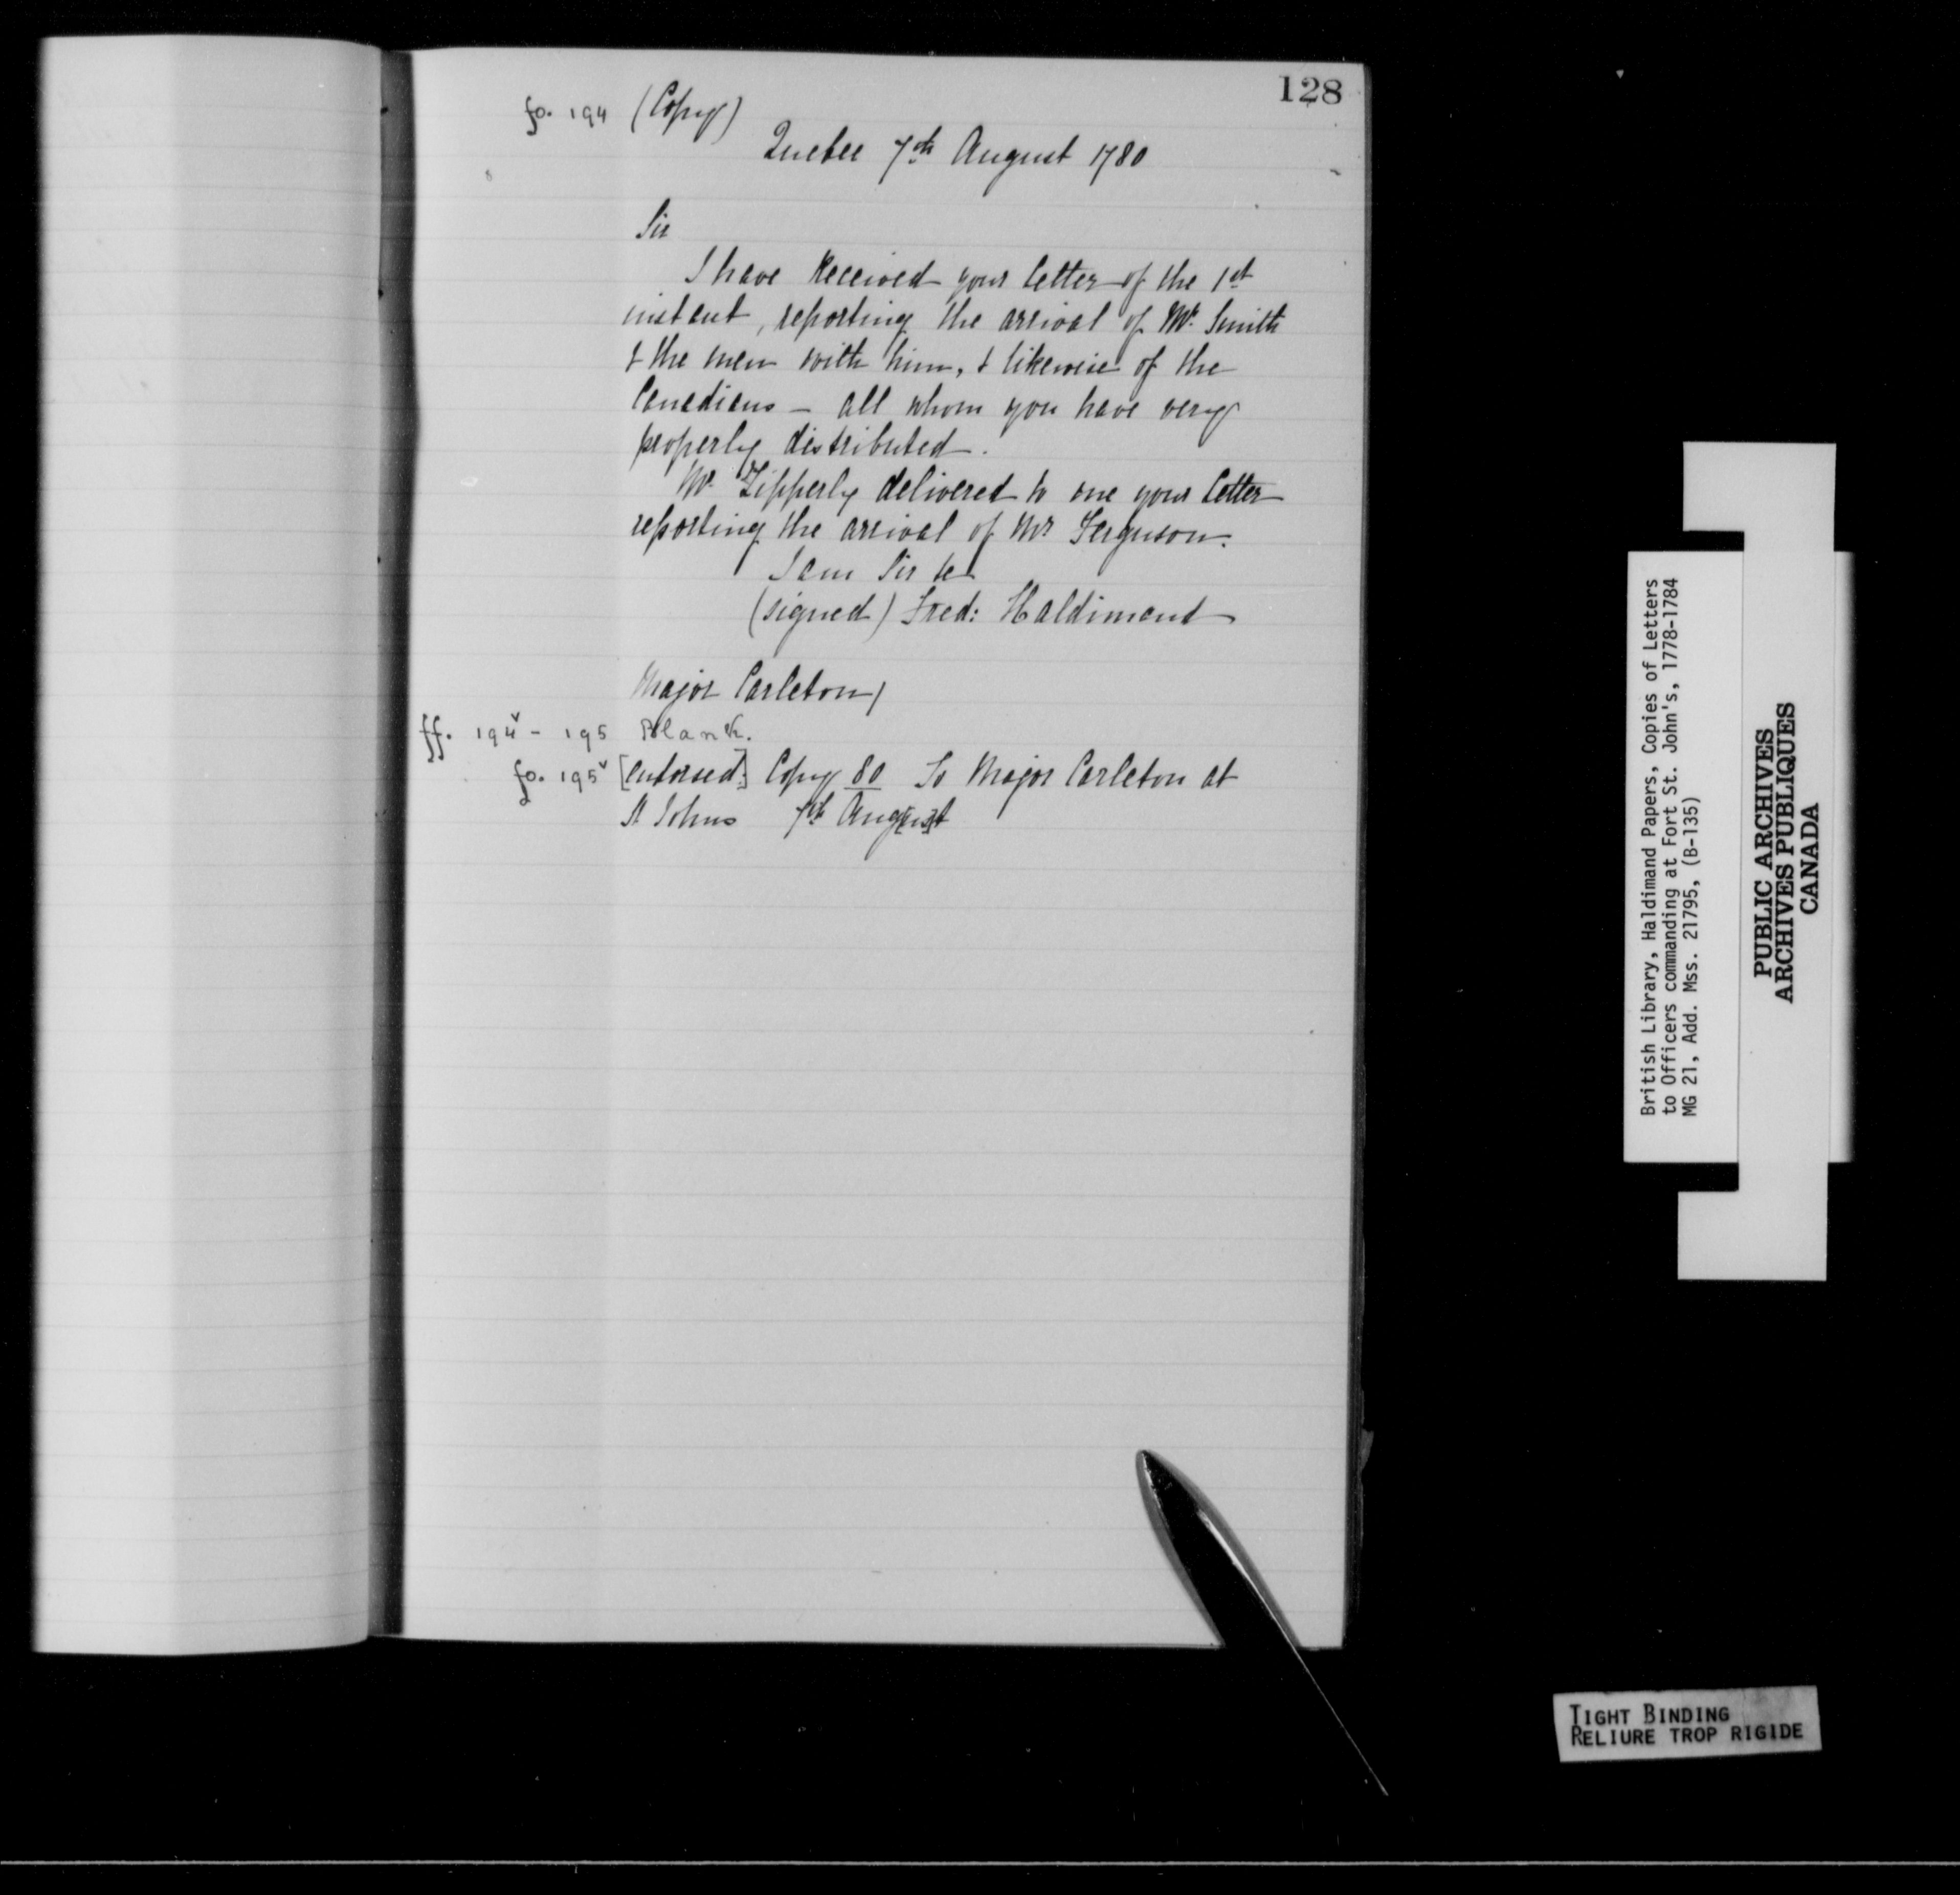 128
fo. 194 (Copy)
Quebec 7th August 1780
Sir
I have Received your letter of the 1st
instant, reporting the arrival of Mr. Smith
& the men with him, & likewise of the
Canadians – all whom you have very
properly distributed.
Mr. delivered to me your letter
reporting the arrival of Mr Ferguson.
I am Sir &c
(signed) Fred: Haldimand
Major Carleton/
ff. 194v - 195 Blank.
fo. 195v [endorsed:] Copy 80 To Major Carleton at
St Johns 7th Aug[us]t
British Library, Haldimand Papers, Copies of Letters
to Officers commanding at Fort St. John's, 1778-1784
MG 21, Add. Mss. 21795, (B-135)
PUBLIC ARCHIVES
ARCHIVES PUBLIQUES
CANADA
TIGHT BINDING
RELIURE TROP RIGIDE